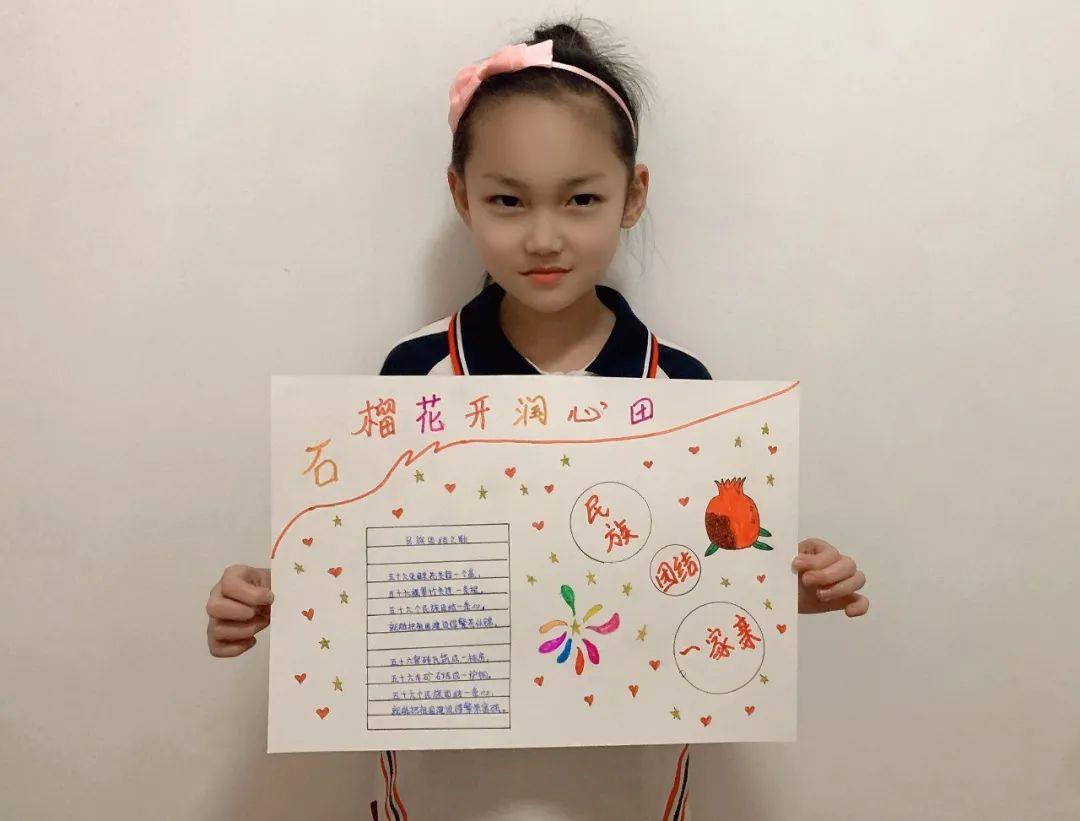 石榴花开润心田
民族
团结
一家亲
民族团结之歌
五十六朵鲜花一个春，
五十六棵翠竹一条根，
五十六个民族团结一条心，
就能把祖国建设得繁荣似锦。
五十六窑砖瓦筑成一栋房，
五十六车矿石炼成一炉钢，
五十六个民族团结一条心，
就能把祖国建设得繁荣富强。